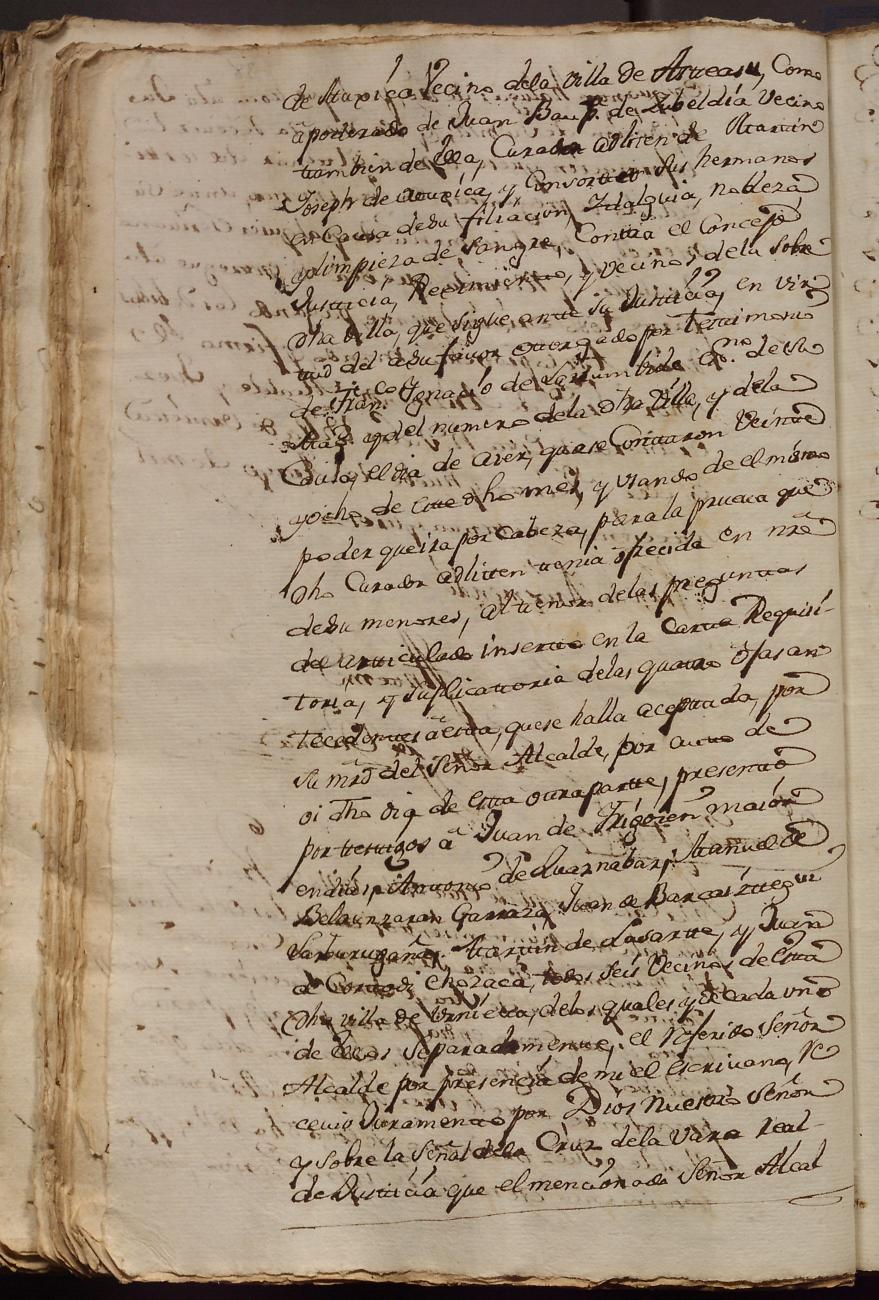 de Muxica Vecino dela villa de Atteaga, Como
apoderado de Juan Bap.ta de Zubeldia Vecino
tambien de ella, Curador adlitem de Martin
Joseph de Muxica, y Consortes sus hermanos
en Causa de su filiacion, Idalguia, nobleza
y limpieza de sangre, Contra el Concejo
Justicia, Rexim.to, y Vecinos dela sobre
dha villa, que sigue ante su Justicia, en vir
tud del a su favor otorgado por testimonio
de Fran.co Ignacio de es.no de su
Mag.d y del numero dela dha Villa, y dela
Causa, el dia de ayer, que se Contaron Veinte
y ocho de este dho mes, y usando de el mismo
poder que ira por Cabeza, para la prueva que
dho Curador adlitem tenia ofrecida en nre
de su menores, al tenor delas preguntas
del articulado inserto en la Carta Requisi-
toria, y suplicatoria delas quatro ojas an
tecedentes a esta, que se halla aceptada, por
su mrd del Señor Alcalde, por auto de
oi dho dia de esta otra parte, presentò
por testigos à Juan de Irigoien maior
en dias, Antonio de Manuel de
Belaunzaran Garraza, Juan de Barcaiztegui
Martin de Lasarte, y Juan
de todos seis Vecinos de esta
dha villa de Urnieta, delos quales y de cada uno
de ellos separadamente, el referido Señor
Alcalde por presencia de mi el Escrivano, re
cevio Juramento por Dios Nuestro Señor
y sobre la Señal dela Cruz dela Vara Real
de Justicia que el mencionado Señor Alcal